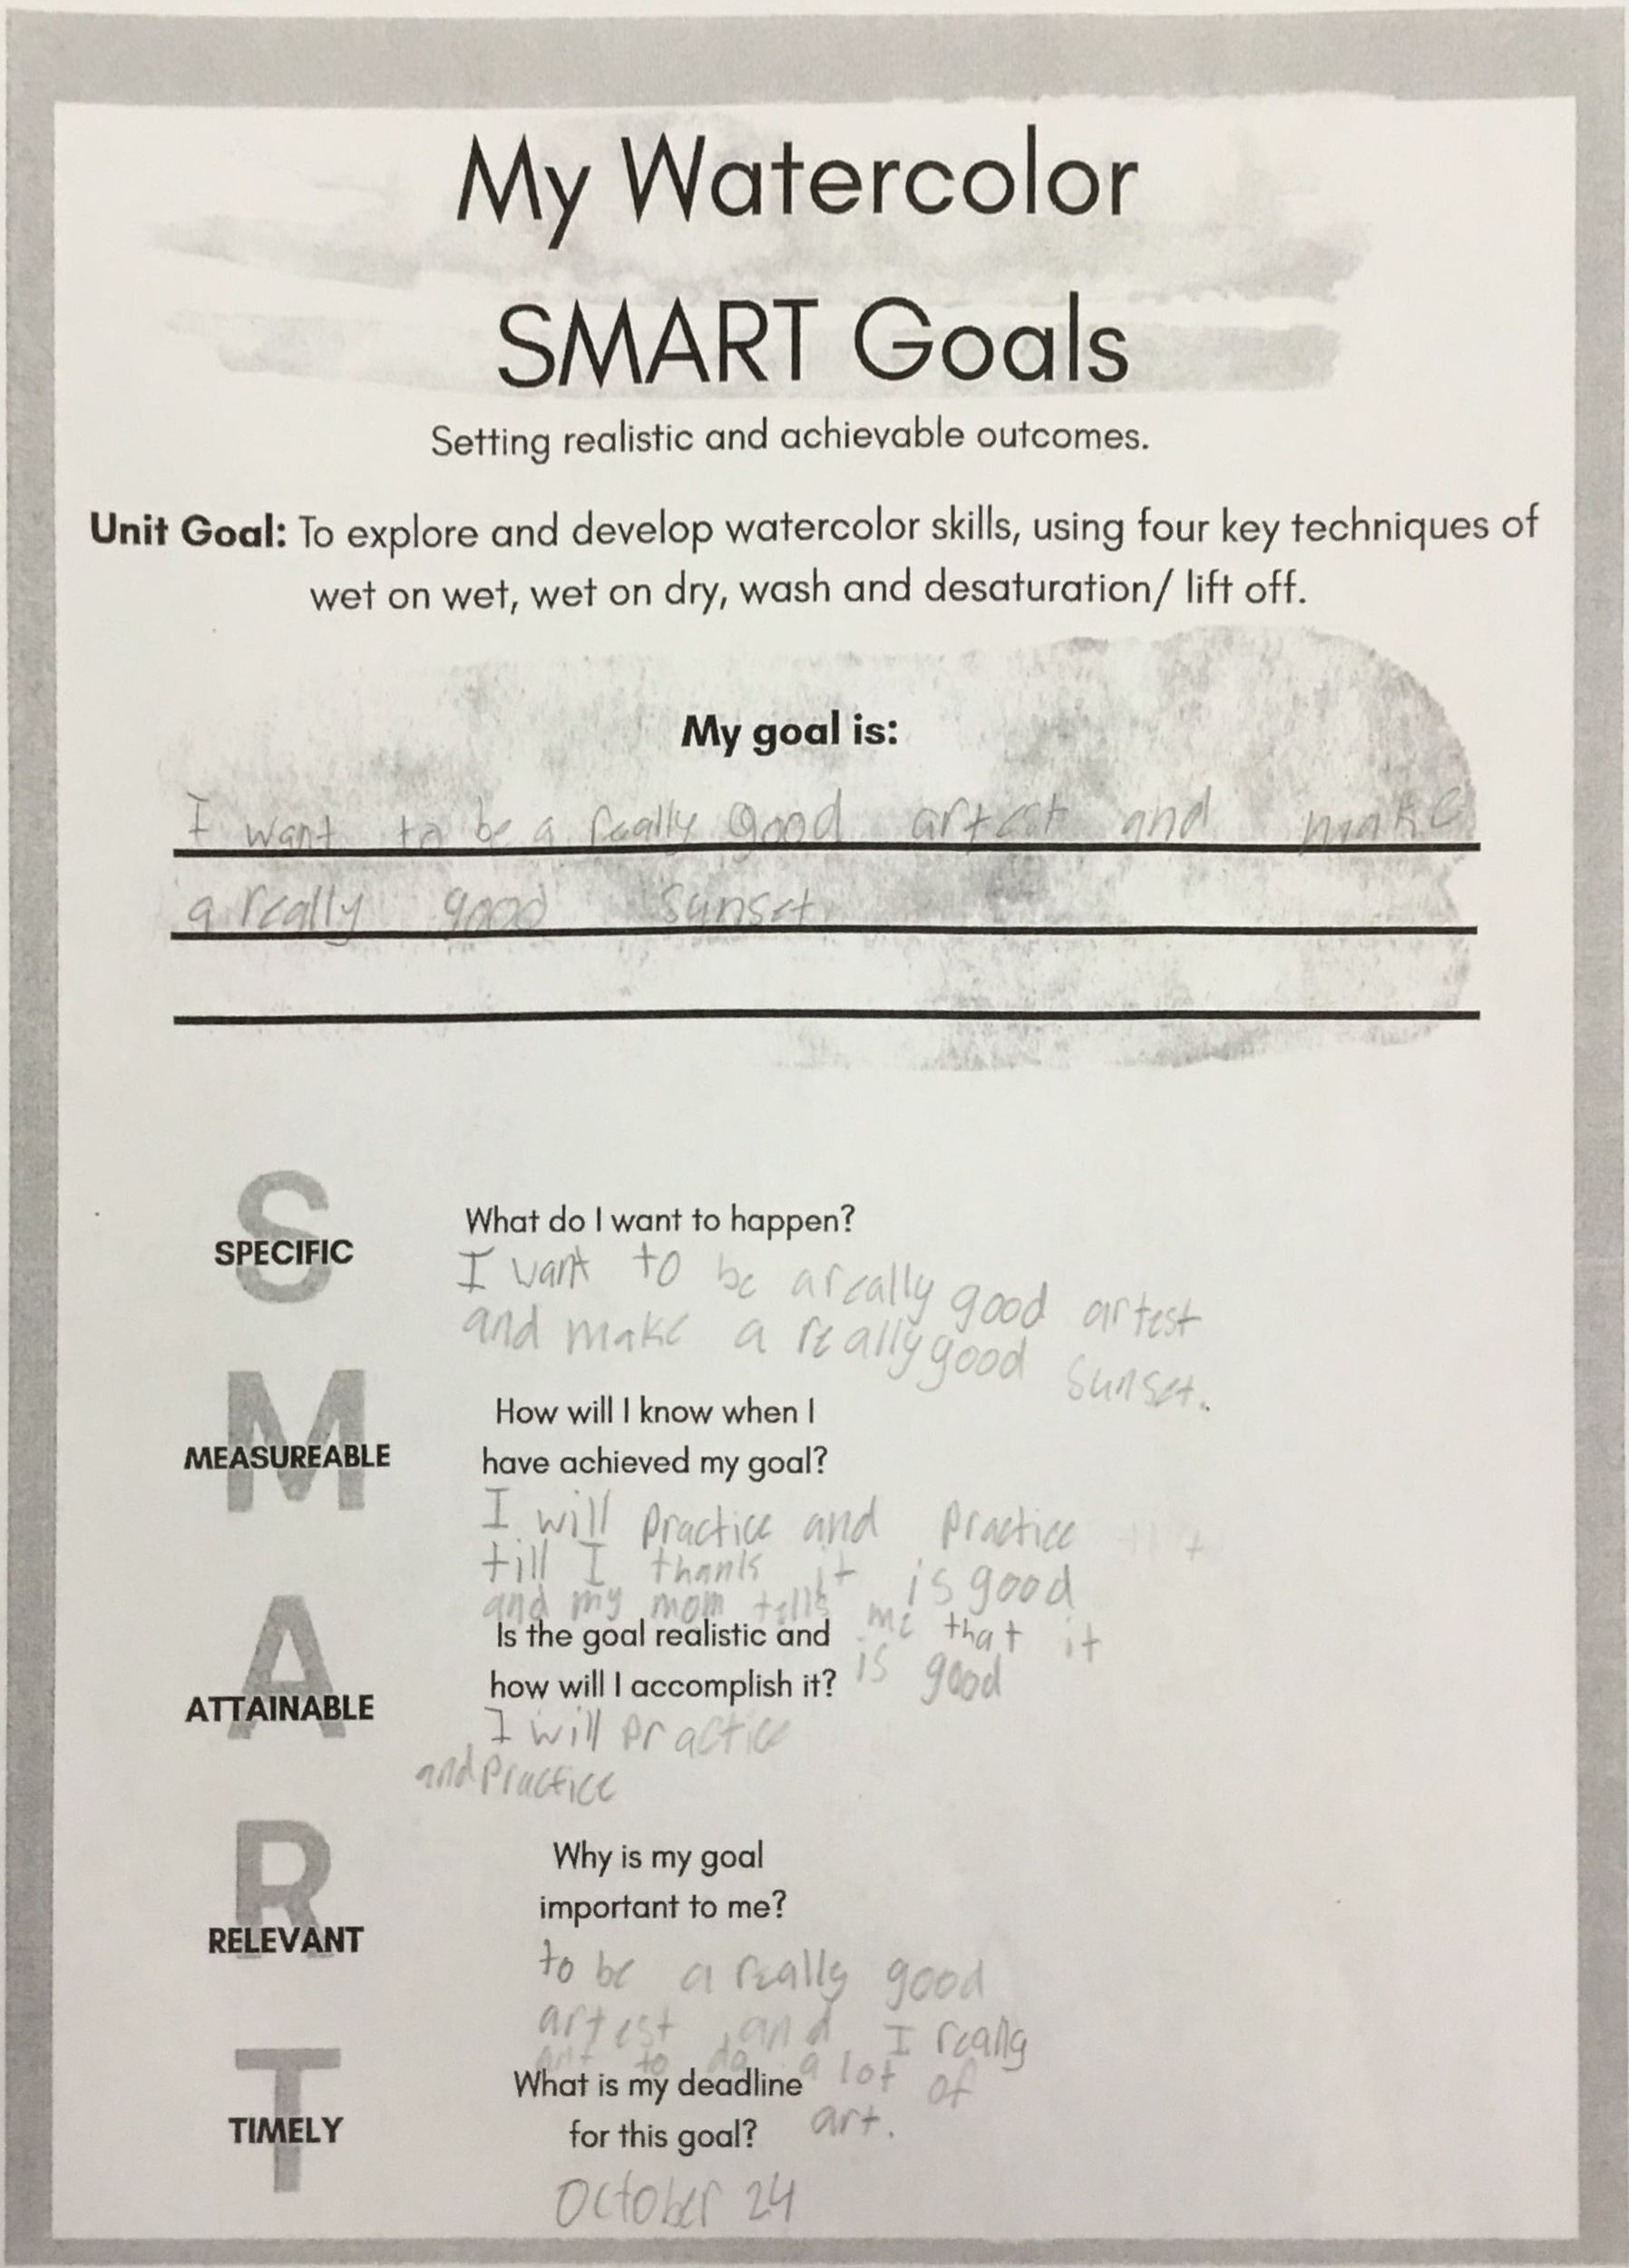 My Watercolor
SMART Goals
Setting realistic and achievable outcomes.
Unit Goal: To explore and develop watercolor skills, using four key techniques of
wet on wet, wet on dry, wash and desaturation/ lift off.
My goal is:
I want to be a really good artest and make
a really good sunset
S
SPECIFIC
What do I want to happen?
I want to be a really good artest
and make a really good sunset.
M
MEASUREABLE
How will I know when I
have achieved my goal?
I will practice and practice
till I thank it is good
and my mom tells me that it
is good
A
ATTAINABLE
Is the goal realistic and
how will I accomplish it?
I will practice
and practice
R
RELEVANT
Why is my goal
important to me?
to be a really good
artest and I really
to do a lot of
art.
T
TIMELY
What is my deadline
for this goal?
October 24